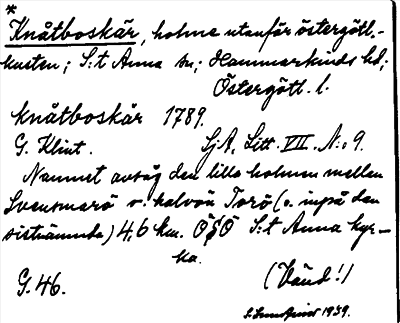 *
Knåtboskär, holme utanför östergötl.-
kusten; S:t Anna sn; Hammarkinds hd;
Östergötl. l.
Knåtboskär 1789.
G. Klint. SjA, Litt. VII. N:o 9.
Namnet avsåg den lilla holmen mellan
Svensmarö o. halvön Torö (o. inpå den
sistnämnda) 4,6 km. ÖSÖ S:t Anna kyr-
ka.
G. 46. (Vänd!)
1939.